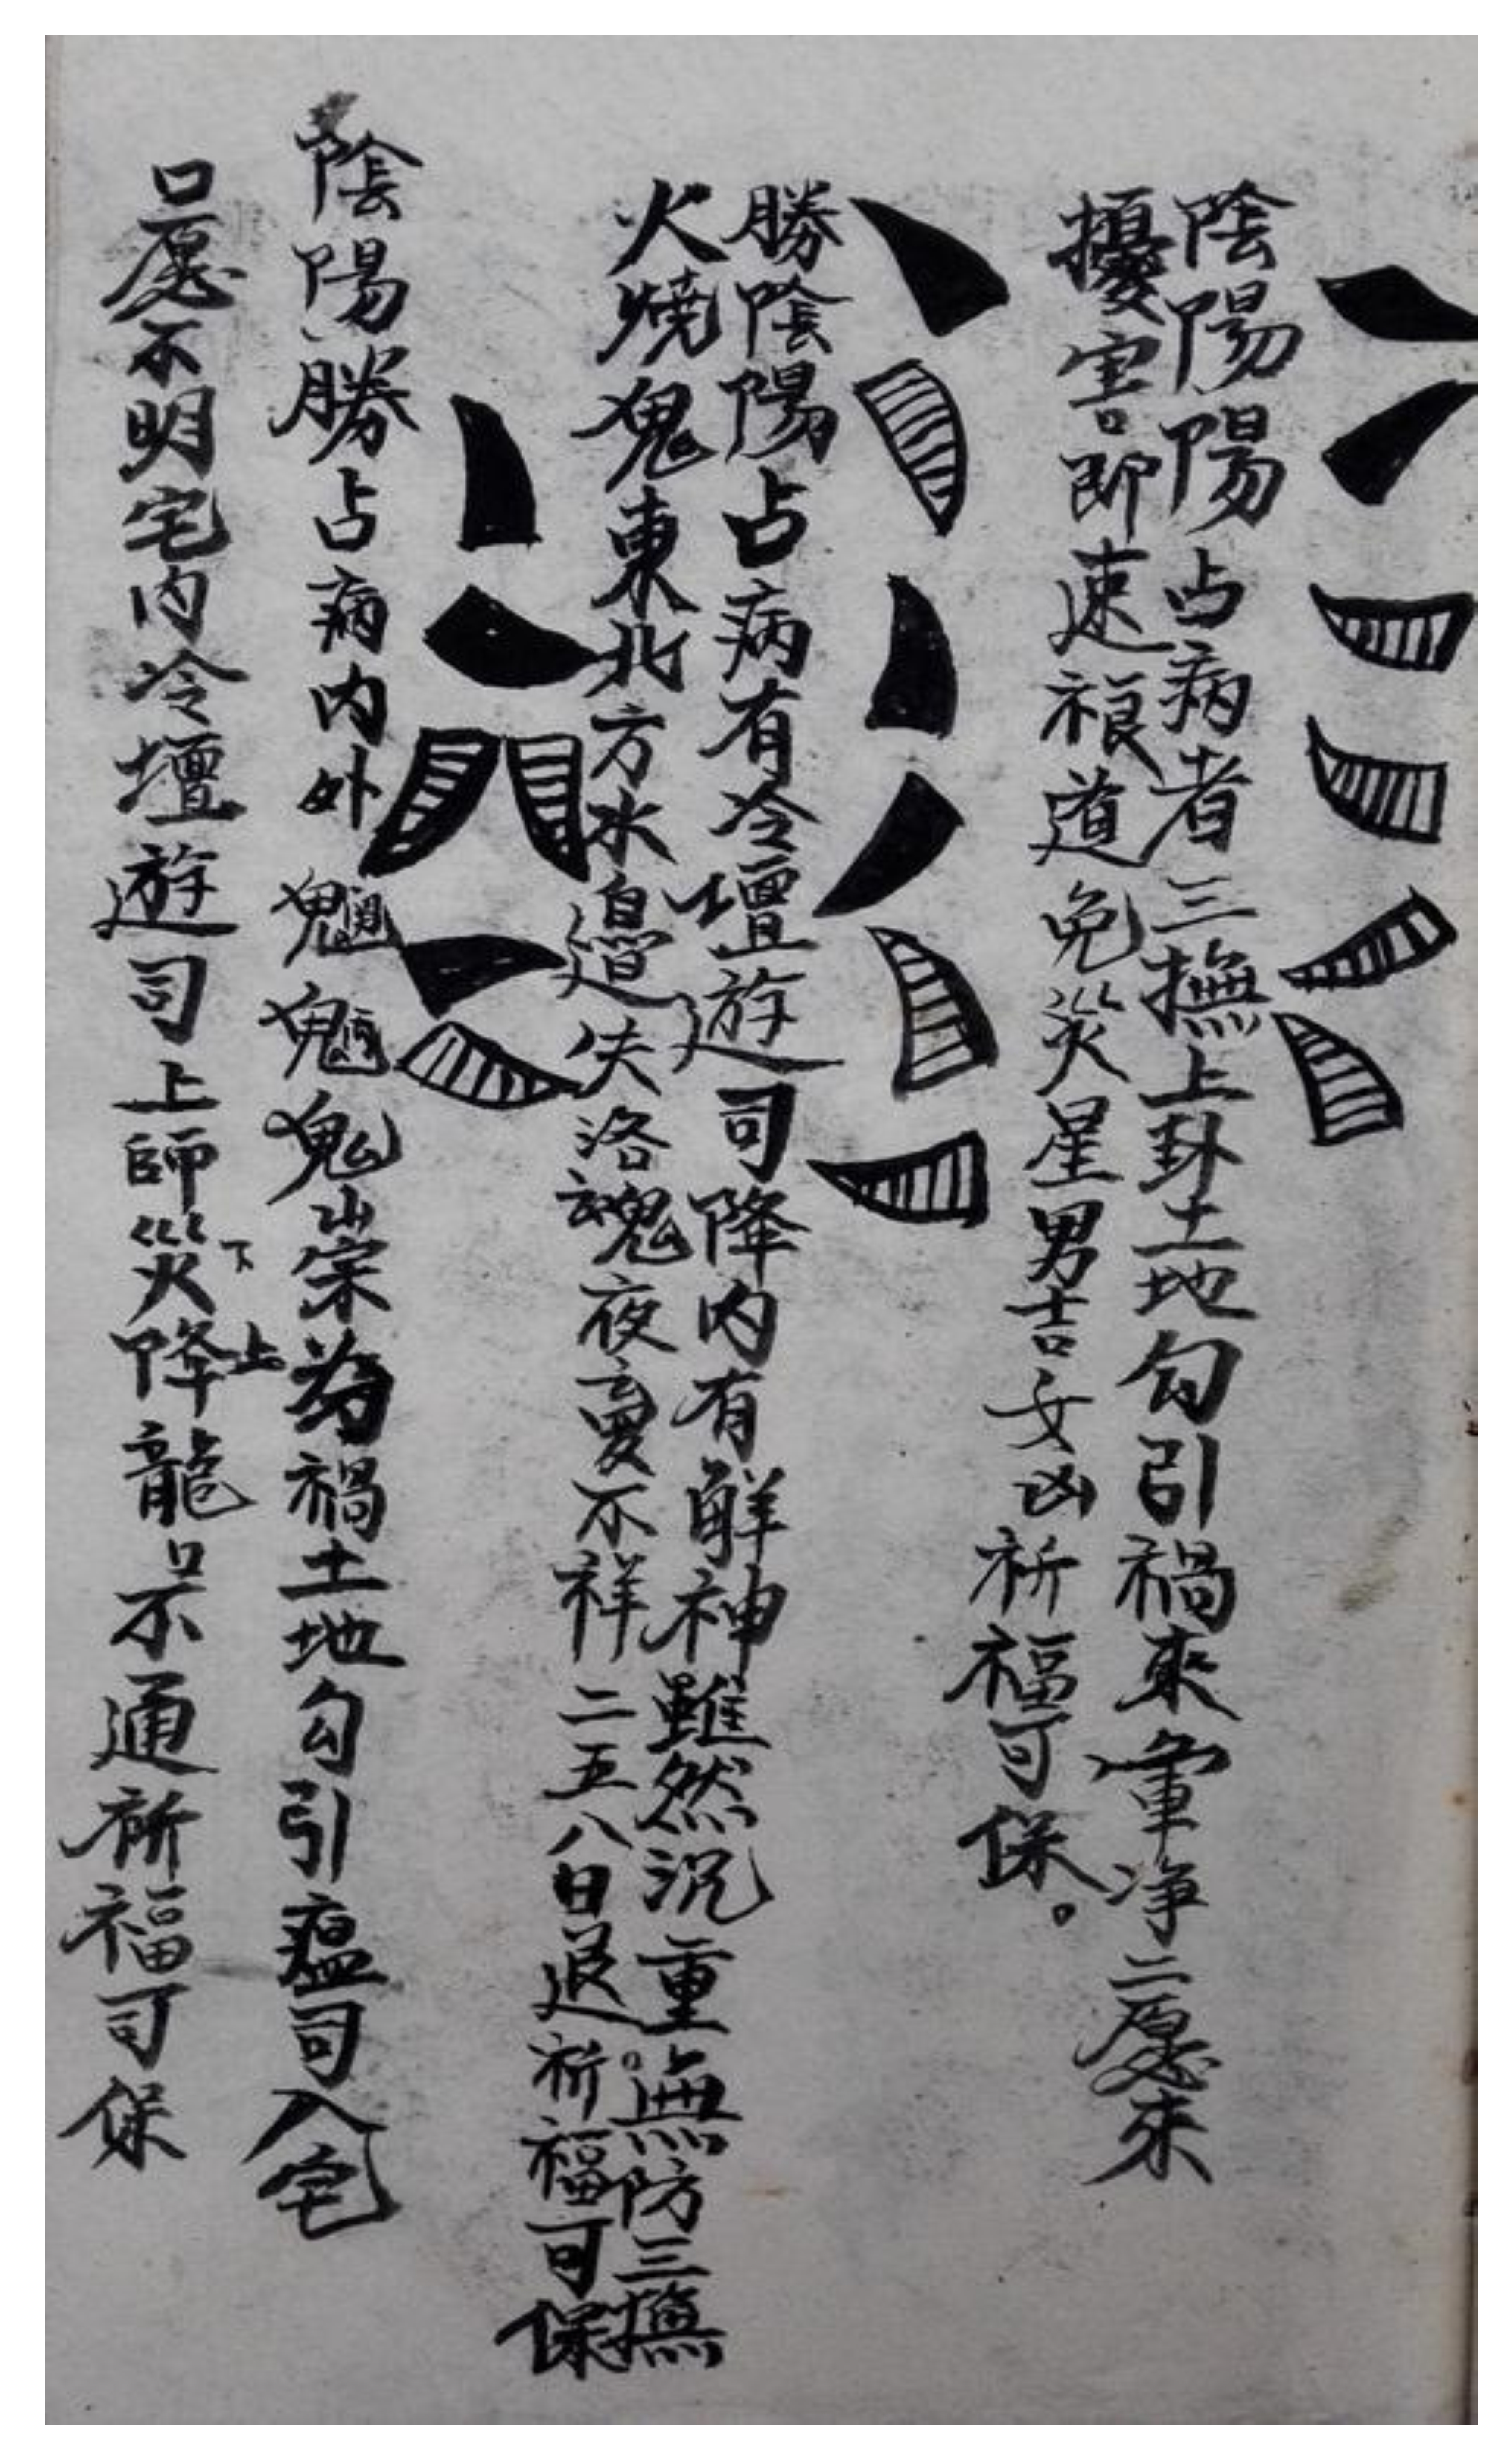 陰陽陽占病者三撫上卦土地勾引禍來葷净二愿來
擾害即速禳道免災星男吉女凶祈福可保。
勝陰陽占病有冷壇遊司降内有觧神雖然沉重無防三撫
火燒鬼東北方水邉失洛魂夜夢不祥二五八日退祈福可保
陰陽勝占病内外魍魎鬼祟為禍土地勾引瘟司入宅
口愿不明宅内冷壇遊司上師災下降上龍口不通祈福可保